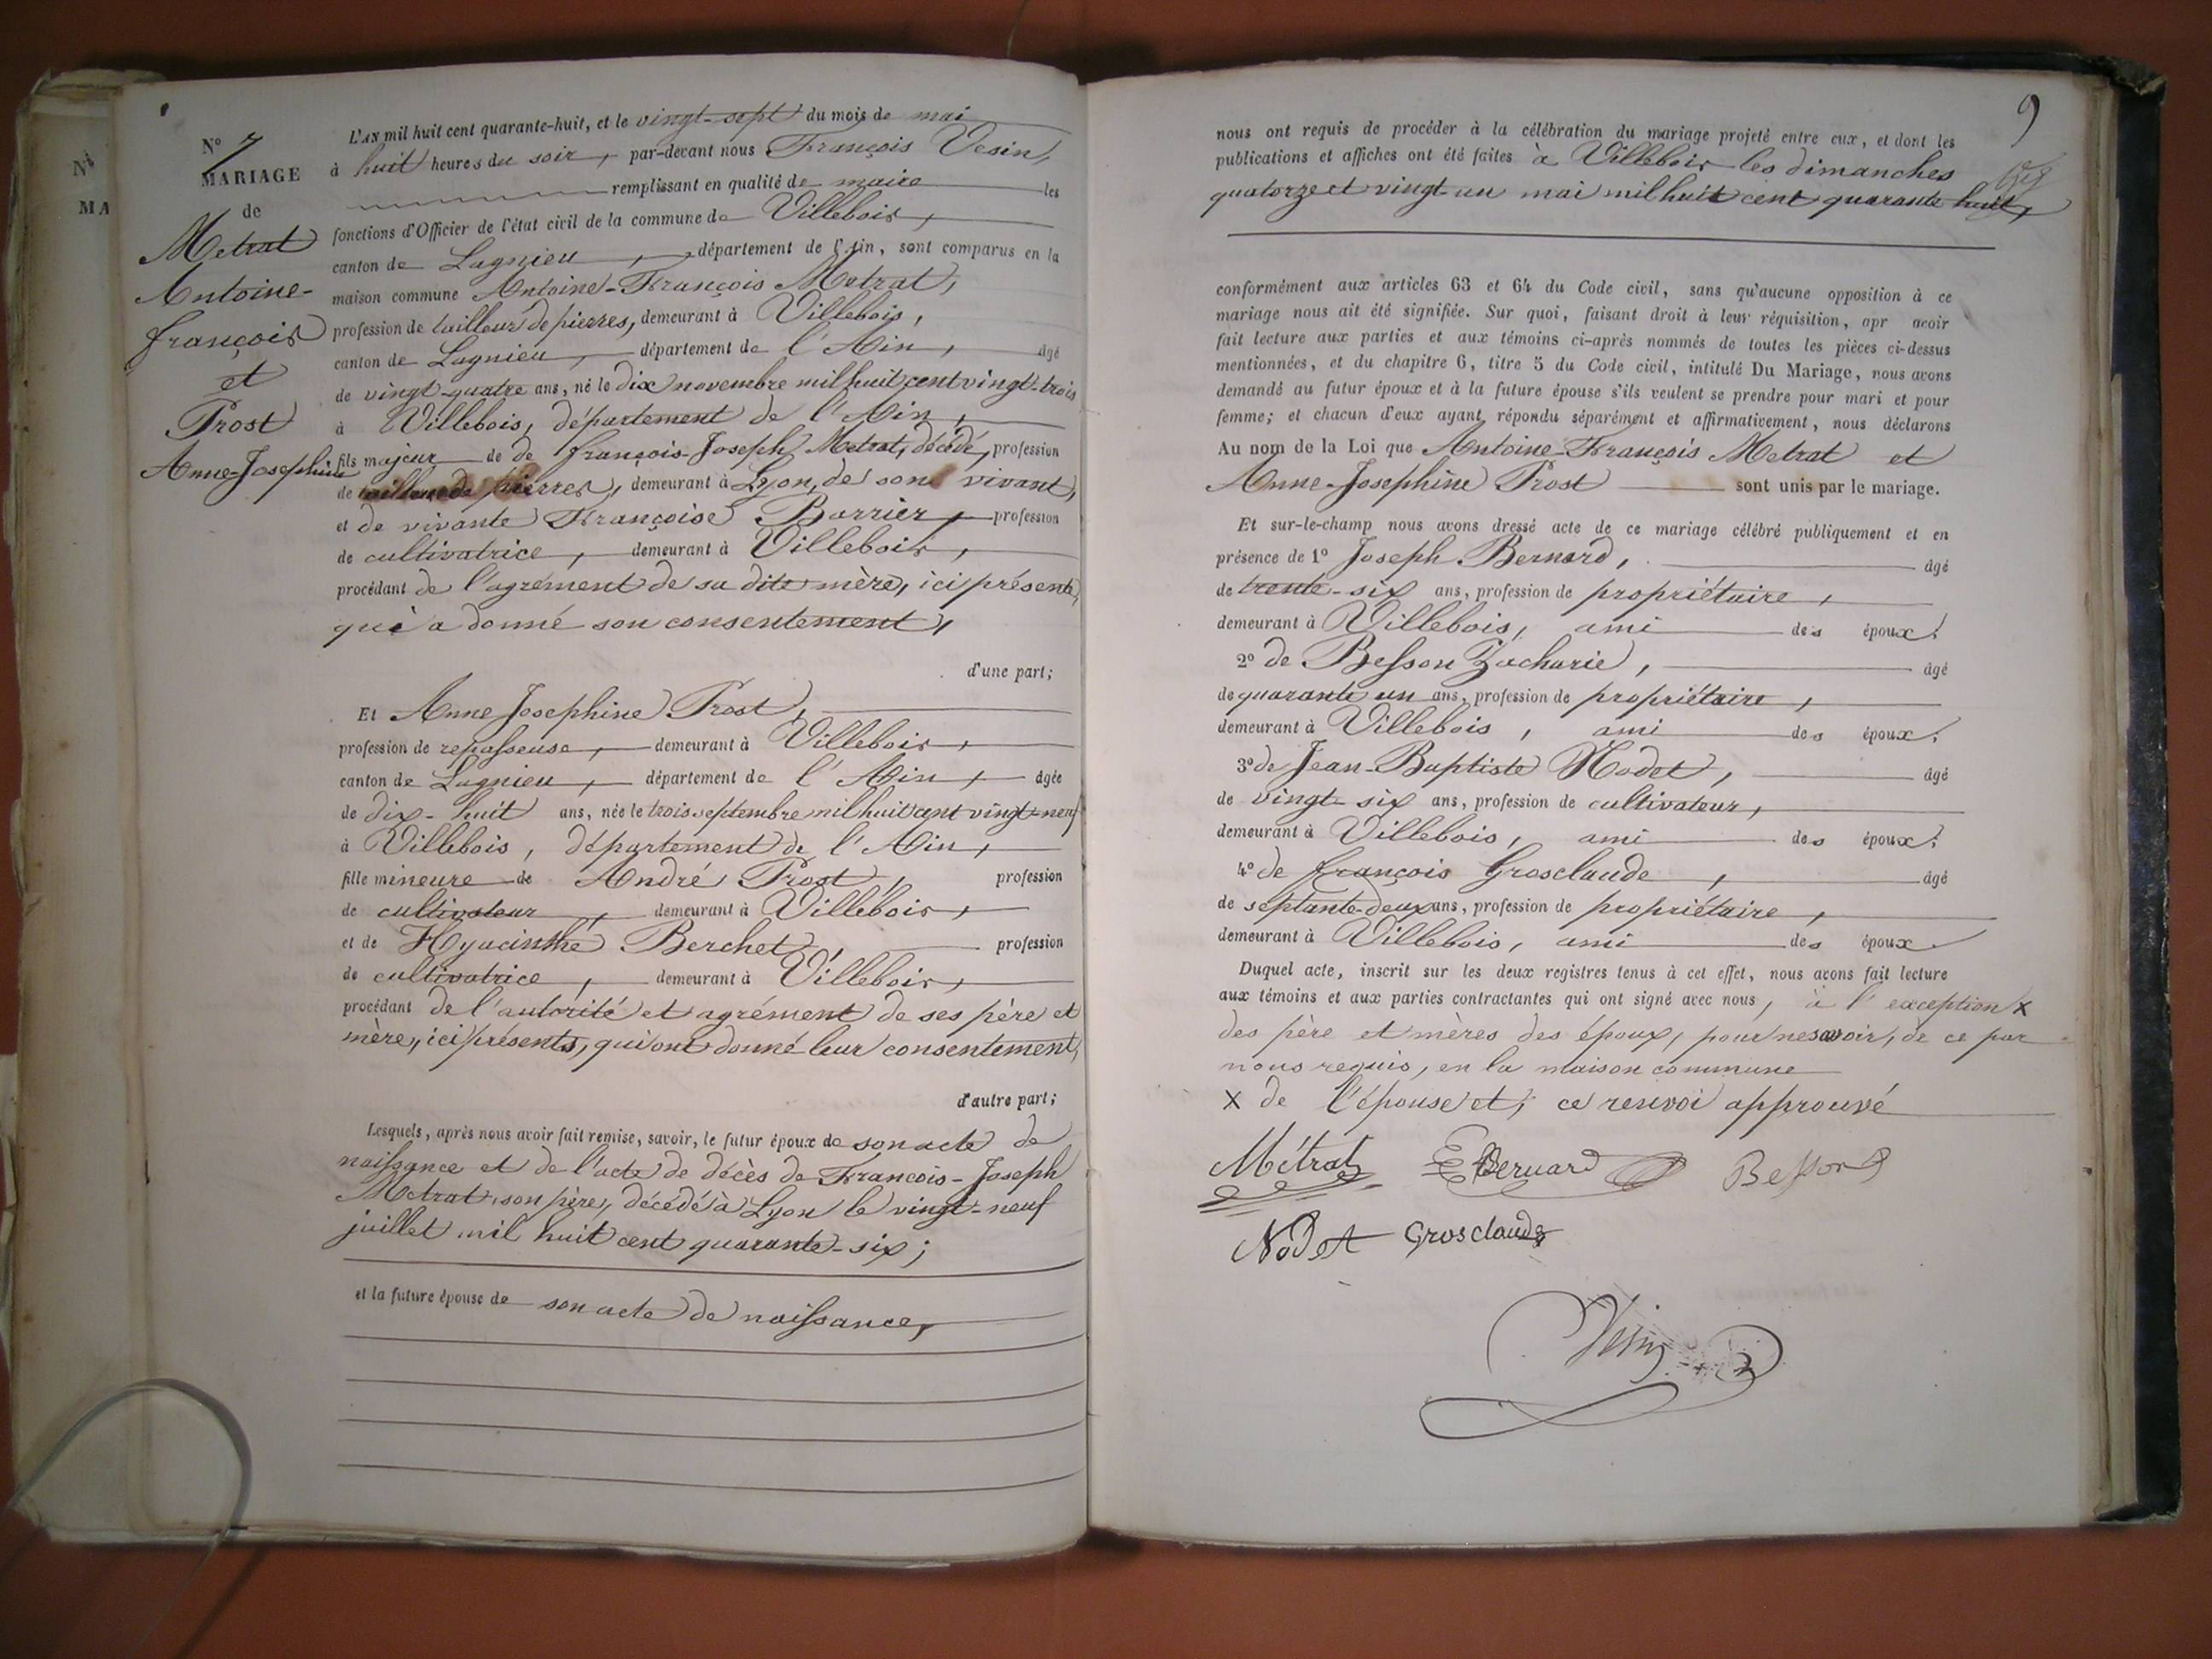 N° 7
MARIAGE
de
Metrat
Antoine-
françois
et
Prost
Anne-Josephine
L'AN mil huit cent quarante-huit, et le vingt-sept du mois de mai
à huit heures du soir, par-devant nous François Vesin,
remplissant en qualité de maire les
fonctions d'Officier de l'état civil de la commune de Villebois,
canton de Lagnieu, département de l'Ain, sont comparus en la
maison commune Antoine-François Metrat,
profession de tailleur de pierres, demeurant à Villebois,
canton de Lagnieu, département de l'Ain, âgé
de vingt-quatre ans, né le dix novembre mil huit cent vingt-trois
à Villebois, département de l'Ain,
fils majeur de de françois-Joseph Metrat, décédé, profession
de tailleur de pierres, demeurant à Lyon, de son vivant,
et de vivante Françoise Barrier, profession
de cultivatrice, demeurant à Villebois,
procédant de l'agrément de sa dite mère, ici présente,
qui a donné son consentement,
d'une part;
Et Anne Josephine Prost,
profession de repasseuse, demeurant à Villebois,
canton de Lagnieu, département de l'Ain, âgée
de dix-huit ans, née le trois septembre mil huit cent vingt-neuf
à Villebois, département de l'Ain,
fille mineure de André Prost, profession
de cultivateur, demeurant à Villebois,
et de Hyacinthe Berchet, profession
de cultivatrice, demeurant à Villebois,
procédant de l'autorité et agrément de ses père et
mère, ici présents, qui ont donné leur consentement,
d'autre part;
Lesquels, après nous avoir fait remise, savoir, le futur époux de son acte de
naissance et de l'acte de décès de François-Joseph
Metrat, son père, décédé à Lyon le vingt-neuf
juillet mil huit cent quarante-six;
et la future épouse de son acte de naissance,
9
nous ont requis de procéder à la célébration du mariage projeté entre eux, et dont les
publications et affiches ont été faites à Villebois les dimanches
quatorze et vingt-un mai mil huit cent quarante huit,
conformément aux articles 63 et 64 du Code civil, sans qu'aucune opposition à ce
mariage nous ait été signifiée. Sur quoi, faisant droit à leur réquisition, apr avoir
fait lecture aux parties et aux témoins ci-après nommés de toutes les pièces ci-dessus
mentionnées, et du chapitre 6, titre 5 du Code civil, intitulé Du Mariage, nous avons
demandé au futur époux et à la future épouse s'ils veulent se prendre pour mari et pour
femme; et chacun d'eux ayant répondu séparément et affirmativement, nous déclarons
Au nom de la Loi que Antoine-François Metrat et
Anne-Josephine Prost sont unis par le mariage.
Et sur-le-champ nous avons dressé acte de ce mariage célébré publiquement et en
présence de 1° Joseph Bernard, âgé
de trente-six ans, profession de propriétaire,
demeurant à Villebois, ami des époux;
2° de Besson Zacharie, âgé
de quarante un ans, profession de propriétaire,
demeurant à Villebois, ami des époux;
3° de Jean-Baptiste Nodet, âgé
de vingt-six ans, profession de cultivateur,
demeurant à Villebois, ami des époux;
4° de françois Grosclaude, âgé
de septante-deux ans, profession de propriétaire,
demeurant à Villebois, ami des époux.
Duquel acte, inscrit sur les deux registres tenus à cet effet, nous avons fait lecture
aux témoins et aux parties contractantes qui ont signé avec nous, à l'exception X
des père et mères des époux, pour ne savoir, de ce par
nous requis, en la maison commune
X de l'épouse et; ce renvoi approuvé
Métrat Bernard Besson
Nodet Grosclaude
Vesin